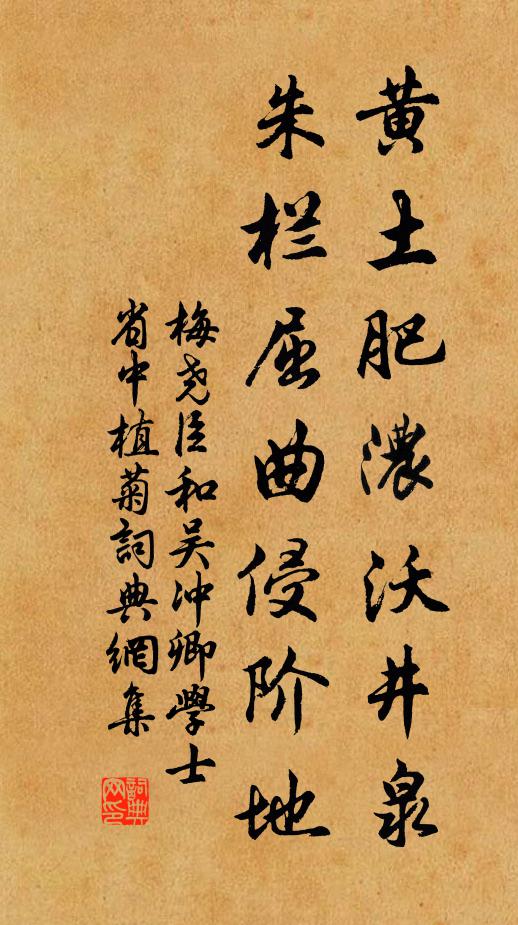 黄土肥濃沃井泉
朱栏屈曲侵阶地
梅尧臣和吴冲卿學士
省中植菊詞典網集
詞典网印